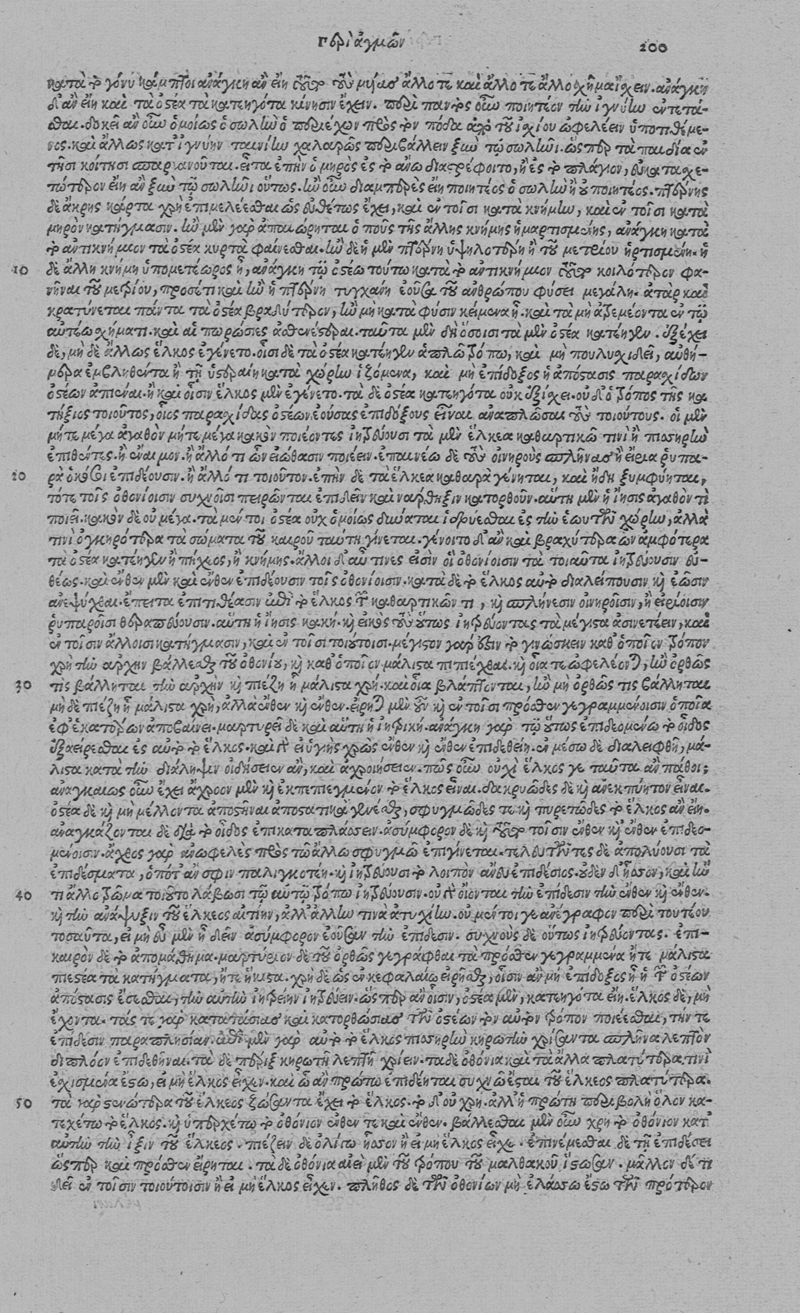 περὶ ἀγμῶν 200
κατὰ τὸ γόνυ κάμπτοι ἀνάγκη ἂν εἴη καὶ τοὺς μύας ἄλλοτε καὶ ἄλλοτε ἄλλο σχῆμα ἴσχειν. ἀνάγκη
δ' ἂν εἴη καὶ τὰ ὀστέα τὰ κατεηγότα κίνησιν ἔχειν. περὶ παντὸς οὖν ποιητέον τὴν ἰγνύην ἐντετά-
σθαι. δοκεῖ ἂν οὖν ὁμοίως ὁ σωλὴν ὁ περιέχων πρὸς τὸν πόδα ἀπὸ τοῦ ἰσχίου ὠφελέειν ὑποτιθέμε-
νος. καὶ ἄλλως κατ' ἰγνύην ταινίην χαλαρῶς περιβάλλειν ξὺν τῷ σωλῆνι. ὥσπερ τὰ παιδία ἐν
τῇσι κοίτῃσι σπαργανοῦται. εἶτα ἐπὴν ὁ μηρὸς ἐς τὸ ἄνω διαστρέφοιτο, ἢ ἐς τὸ πλάγιον, εὐκατασχε-
τώτερον εἴη ἂν ξὺν τῷ σωλῆνι οὕτως. ἢν οὖν διαμπερὲς εἴη ποιητέος ὁ σωλὴν ἢ οὐ ποιητέος. πτέρνης
δὲ ἄκρης κάρτα χρὴ ἐπιμελέεσθαι ὡς εὐθέτως ἔχει, καὶ ἐν τοῖσι κατὰ κνήμην, καὶ ἐν τοῖσι κατὰ
μηρὸν κατήγμασιν. ἢν μὲν γὰρ ἀπαιωρῆται ὁ ποῦς τῆς ἄλλης κνήμης ἡρμασμένης, ἀνάγκη κατὰ
τὸ ἀντικνήμιον τὰ ὀστέα κυρτὰ φαίνεσθαι. ἢν δὲ ἡ μὲν πτέρνη ὑψηλοτέρη ᾖ τοῦ μετρίου ἡρτισμένη. ἡ
10 δὲ ἄλλη κνήμη ὑπομετέωρος ᾖ, ἀνάγκη τῷ ὀστέῳ τούτῳ κατὰ τὸ ἀντικνήμιον τοῦτο κοιλότερον φα-
νῆναι τοῦ μετρίου, προσέτι καὶ ἢν ἡ πτέρνη τυγχάνῃ ἐοῦσα τοῦ ἀνθρώπου φύσει μεγάλη. ἀτὰρ καὶ
κρατύνεται πάντα τὰ ὀστέα βραδύτερον, ἢν μὴ κατὰ φύσιν κείμενα ᾖ. καὶ τὰ μὴ ἀτρεμέοντα ἐν τῷ
αὐτέῳ σχήματι. καὶ αἱ πωρώσιες ἀσθενέστεραι. ταῦτα μὲν δὴ ὅσοισι τὰ μὲν ὀστέα κατέηγεν. ἐξέχει
δὲ, μὴ δὲ ἄλλως ἕλκος ἐγένετο. οἷσι δὲ τὰ ὀστέα κατέηγεν ἁπλῷ τρόπῳ, καὶ μὴ πολυσχιδεῖ, αὐθή-
μερα ἐμβληθέντα ἢ τῇ ὑστεραίῃ κατὰ χώρην ἱζόμενα, καὶ μὴ ἐπίδοξος ἡ ἀπόστασις παρασχίδων
ὀστέων ἀπιέναι. ἢ καὶ οἷσιν ἕλκος μὲν ἐγένετο. τὰ δὲ ὀστέα κατεηγότα οὐκ ἐξίσχει. οὐδ' ὁ τρόπος τῆς κα-
τήξιος τοιοῦτος, οἷος παρασχίδας ὀστέων ἐούσας ἐπιδόξους εἶναι ἀναπλῶσαι τοὺς τοιούτους. οἱ μὲν
μήτε μέγα ἀγαθὸν μήτε μέγα κακὸν ποιέοντες ἰητρεύουσι τὰ μὲν ἕλκεα καθαρτικῷ τινὶ ἢ πισσηρὴν
ἐπιθέντες. ἢ ἔναιμον. ἢ ἄλλό τι ὧν εἰώθασιν ποιέειν. ἐπάνω δὲ τοὺς οἰνηροὺς σπλῆνας ἢ εἴρια ῥυπα-
20 ρὰ ἐπιδέουσιν. ἢ ἄλλό τι τοιοῦτον. ἐπὴν δὲ τὰ ἕλκεα καθαρὰ γένηται, καὶ ἤδη ξυμφύηται,
τότε τοῖς ὀθονίοισιν συχνοῖσι πειρῶνται ἐπιδεῖν καὶ νάρθηξιν κατορθοῦν. αὕτη μὲν ἡ ἴησις ἀγαθόν τι
ποιεῖ. κακὸν δὲ οὐ μέγα. τὰ μέντοι ὀστέα οὐχ ὁμοίως δύναται ἱδρύεσθαι ἐς τὴν ἑωυτῶν χώρην, ἀλλά
τινι ὀγκηρότερα τὰ σώματα τοῦ καιροῦ ταύτῃ γίνεται. γένοιτο δ' ἂν καὶ βραχύτερα ὧν ἀμφότερα
τὰ ὀστέα κατέηγεν ἢ πήχεος, ἢ κνήμης. ἄλλοι δ' αὖ τινες εἰσὶν οἳ ὀθονίοισιν τὰ τοιαῦτα ἰητρεύουσιν εὐ-
θέως. καὶ ἔνθεν μὲν καὶ ἔνθεν ἐπιδέουσιν τοῖς ὀθονίοισιν. κατὰ δὲ τὸ ἕλκος αὐτὸ διαλείπουσιν καὶ ἐῶσιν
ἀνεψῦχθαι. ἔπειτα ἐπιτιθέασιν ἐπὶ τὸ ἕλκος τῶν καθαρτικῶν τι, καὶ σπλήνεσιν οἰνηροῖσιν, ἢ εἰρίοισιν
ῥυπαροῖσι θεραπεύουσιν. αὕτη ἡ ἴησις κακή. καὶ εἰκὸς τοὺς οὕτως ἰητρεύοντας τὰ μέγιστα ἀσυνετέειν, καὶ
ἐν τοῖσιν ἄλλοισι κατήγμασιν, καὶ ἐν τοῖσι τοιούτοισι. μέγιστον γάρ ἐστιν τὸ γινώσκειν καθ' ὁποῖον τρόπον
χρὴ τὴν ἀρχὴν βάλλεσθαι τοῦ ὀθονίου, καὶ καθ' ὁποῖον μάλιστα πεπιέχθαι. καὶ οἷα τε ὠφελέονται, ἢν ὀρθῶς
30 τις βάλληται τὴν ἀρχὴν καὶ πιέζῃ ᾗ μάλιστα χρή. καὶ οἷα βλάπτονται, ἢν μὴ ὀρθῶς τις βάλληται
μὴ δὲ πιέζῃ ᾗ μάλιστα χρὴ, ἀλλὰ ἔνθεν καὶ ἔνθεν. εἴρηται μὲν οὖν καὶ ἐν τοῖσι πρόσθεν γεγραμμένοισιν ὁποῖα
ἐφ' ἑκατέρων ἀποβαίνει. μαρτυρεῖ δὲ καὶ αὕτη ἡ ἰητρική. ἀνάγκη γὰρ τῷ οὕτως ἐπιδεομένῳ τὸ οἶδος
ἐξαείρεσθαι ἐς αὐτὸ τὸ ἕλκος. καὶ γὰρ εἰ ὑγιὴς χρὼς ἔνθεν καὶ ἔνθεν ἐπιδεθείη. ἐν μέσῳ δὲ διαλειφθῇ, μά-
λιστα κατὰ τὴν διάληψιν οἰδήσειεν ἂν, καὶ ἀχροιήσειεν. πῶς οὖν οὐχὶ ἕλκος γε ταῦτα ἂν πάθοι;
ἀναγκαίως οὖν ἔχει ἄχροον μὲν καὶ ἐκπεπιεγμένον τὸ ἕλκος εἶναι. δακρυῶδες δὲ καὶ ἀνεκπύητον εἶναι.
ὀστέα δὲ καὶ μὴ μέλλοντα ἀποστῆναι ἀποστατικὰ γενέσθαι, σφυγμῶδές τε καὶ πυρετῶδες τὸ ἕλκος ἂν εἴη.
ἀναγκάζονται δὲ διὰ τὸ οἶδος ἐπικαταπλάσσειν. ἀσύμφορον δὲ καὶ τοῦτο τοῖσιν ἔνθεν καὶ ἔνθεν ἐπιδεο-
μένοισιν. ἄχθος γὰρ ἀνωφελὲς πρὸς τῷ ἄλλῳ σφυγμῷ ἐπιγίνεται. τελευτῶντες δὲ ἀπολύουσι τὰ
ἐπιδέσματα, ὁπόταν σφιν παλιγκοτέῃ. καὶ ἰητρεύουσι τὸ λοιπὸν ἄνευ ἐπιδέσιος. οὐδὲν δ' ἧσσον, καὶ ἤν
40 τι ἄλλο τρῶμα τοιοῦτο λάβωσι τῷ αὐτῷ τρόπῳ ἰητρεύουσιν. οὐ γὰρ οἴονται τὴν ἐπίδεσιν τὴν ἔνθεν καὶ ἔνθεν.
καὶ τὴν ἀνάψυξιν τοῦ ἕλκεος αἰτίην, ἀλλ' ἄλλην τινὰ ἀτυχίην. οὐ μέντοι γε ἂν ἔγραφον περὶ τουτέου
τοσαῦτα, εἰ μὴ εὖ μὲν ᾔδειν ἀσύμφορον ἐοῦσαν τὴν ἐπίδεσιν. συχνοὺς δὲ οὕτως ἰητρεύοντας. ἐπί-
καιρον δὲ τὸ ἀπομάθημα. μαρτύριον δὲ τοῦ ὀρθῶς γεγράφθαι τὰ πρόσθεν γεγραμμένα ἤτε μάλιστα
πιεστέα τὰ κατήγματα, ἤτε ἥκιστα. χρὴ δὲ ὡς ἐν κεφαλαίῳ εἰρῆσθαι, οἷσιν ἂν μὴ ἐπίδοξος ᾖ ἡ τῶν ὀστέων
ἀπόστασις ἔσεσθαι, τὴν αὐτὴν ἰητρείην ἰητρεύειν. ὥσπερ ἂν οἷσιν, ὀστέα μὲν, κατεηγότα εἴη. ἕλκος δὲ, μὴ
ἔχοντα. τάς τε γὰρ κατατάσιας καὶ κατορθώσιας τῶν ὀστέων τὸν αὐτὸν τρόπον ποιέεσθαι, τήν τε
ἐπίδεσιν παραπλησίαν. ἐπὶ μὲν γὰρ αὐτὸ τὸ ἕλκος πισσηρὴν κηρωτὴν χρίσαντα σπλῆνα λεπτὸν
διπλόον ἐπιδεθῆναι. τὰ δὲ πέριξ κηρωτῇ λεπτῇ χρίειν. τὰ δὲ ὀθόνια καὶ τὰ ἄλλα πλατύτερα τινὶ
ἐσχισμένα ἔστω, εἰ μὴ ἕλκος εἶχεν. καὶ ᾧ ἂν πρώτῳ ἐπιδέηται συχνῷ ἔσται τοῦ ἕλκεος πλατύτερα.
50 τὰ γὰρ στενώτερα τοῦ ἕλκεος ζώσαντα ἔχει τὸ ἕλκος. τὸ δ' οὐ χρή. ἀλλ' ἡ πρώτη περιβολὴ ὅλον κα-
τεχέτω τὸ ἕλκος. καὶ ὑπερεχέτω τὸ ὀθόνιον ἔνθεν τε καὶ ἔνθεν. βάλλεσθαι μὲν οὖν χρὴ τὸ ὀθόνιον κατ'
αὐτὴν τὴν ἴξιν τοῦ ἕλκεος. πιέζειν δὲ ὀλίγῳ ἧσσον ἢ εἰ μὴ ἕλκος εἶχε. ἐπινέμεσθαι δὲ τῇ ἐπιδέσει
ὥσπερ καὶ πρόσθεν εἴρηται. τὰ δὲ ὀθόνια αἰεὶ μὲν τοῦ τρόπου τοῦ μαλθακοῦ ἔστωσαν. μᾶλλον δέ τι
δεῖ ἐν τοῖσιν τοιούτοισιν ἢ εἰ μὴ ἕλκος εἶχεν. πλῆθος δὲ τῶν ὀθονίων μὴ ἐλάσσω ἔστω τῶν πρότερον